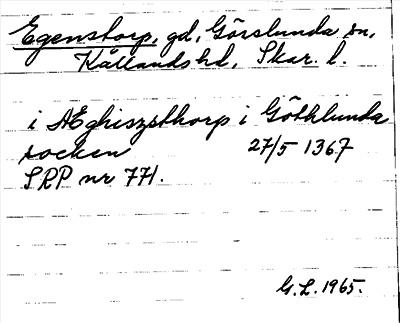 Egenstorp, gd, Görslunda sn,
Kållands hd, Skar. l.
i AEghiszsthorp i Göthlunda
socken 27/5 1367
SRP nr 771.
G.L. 1965.